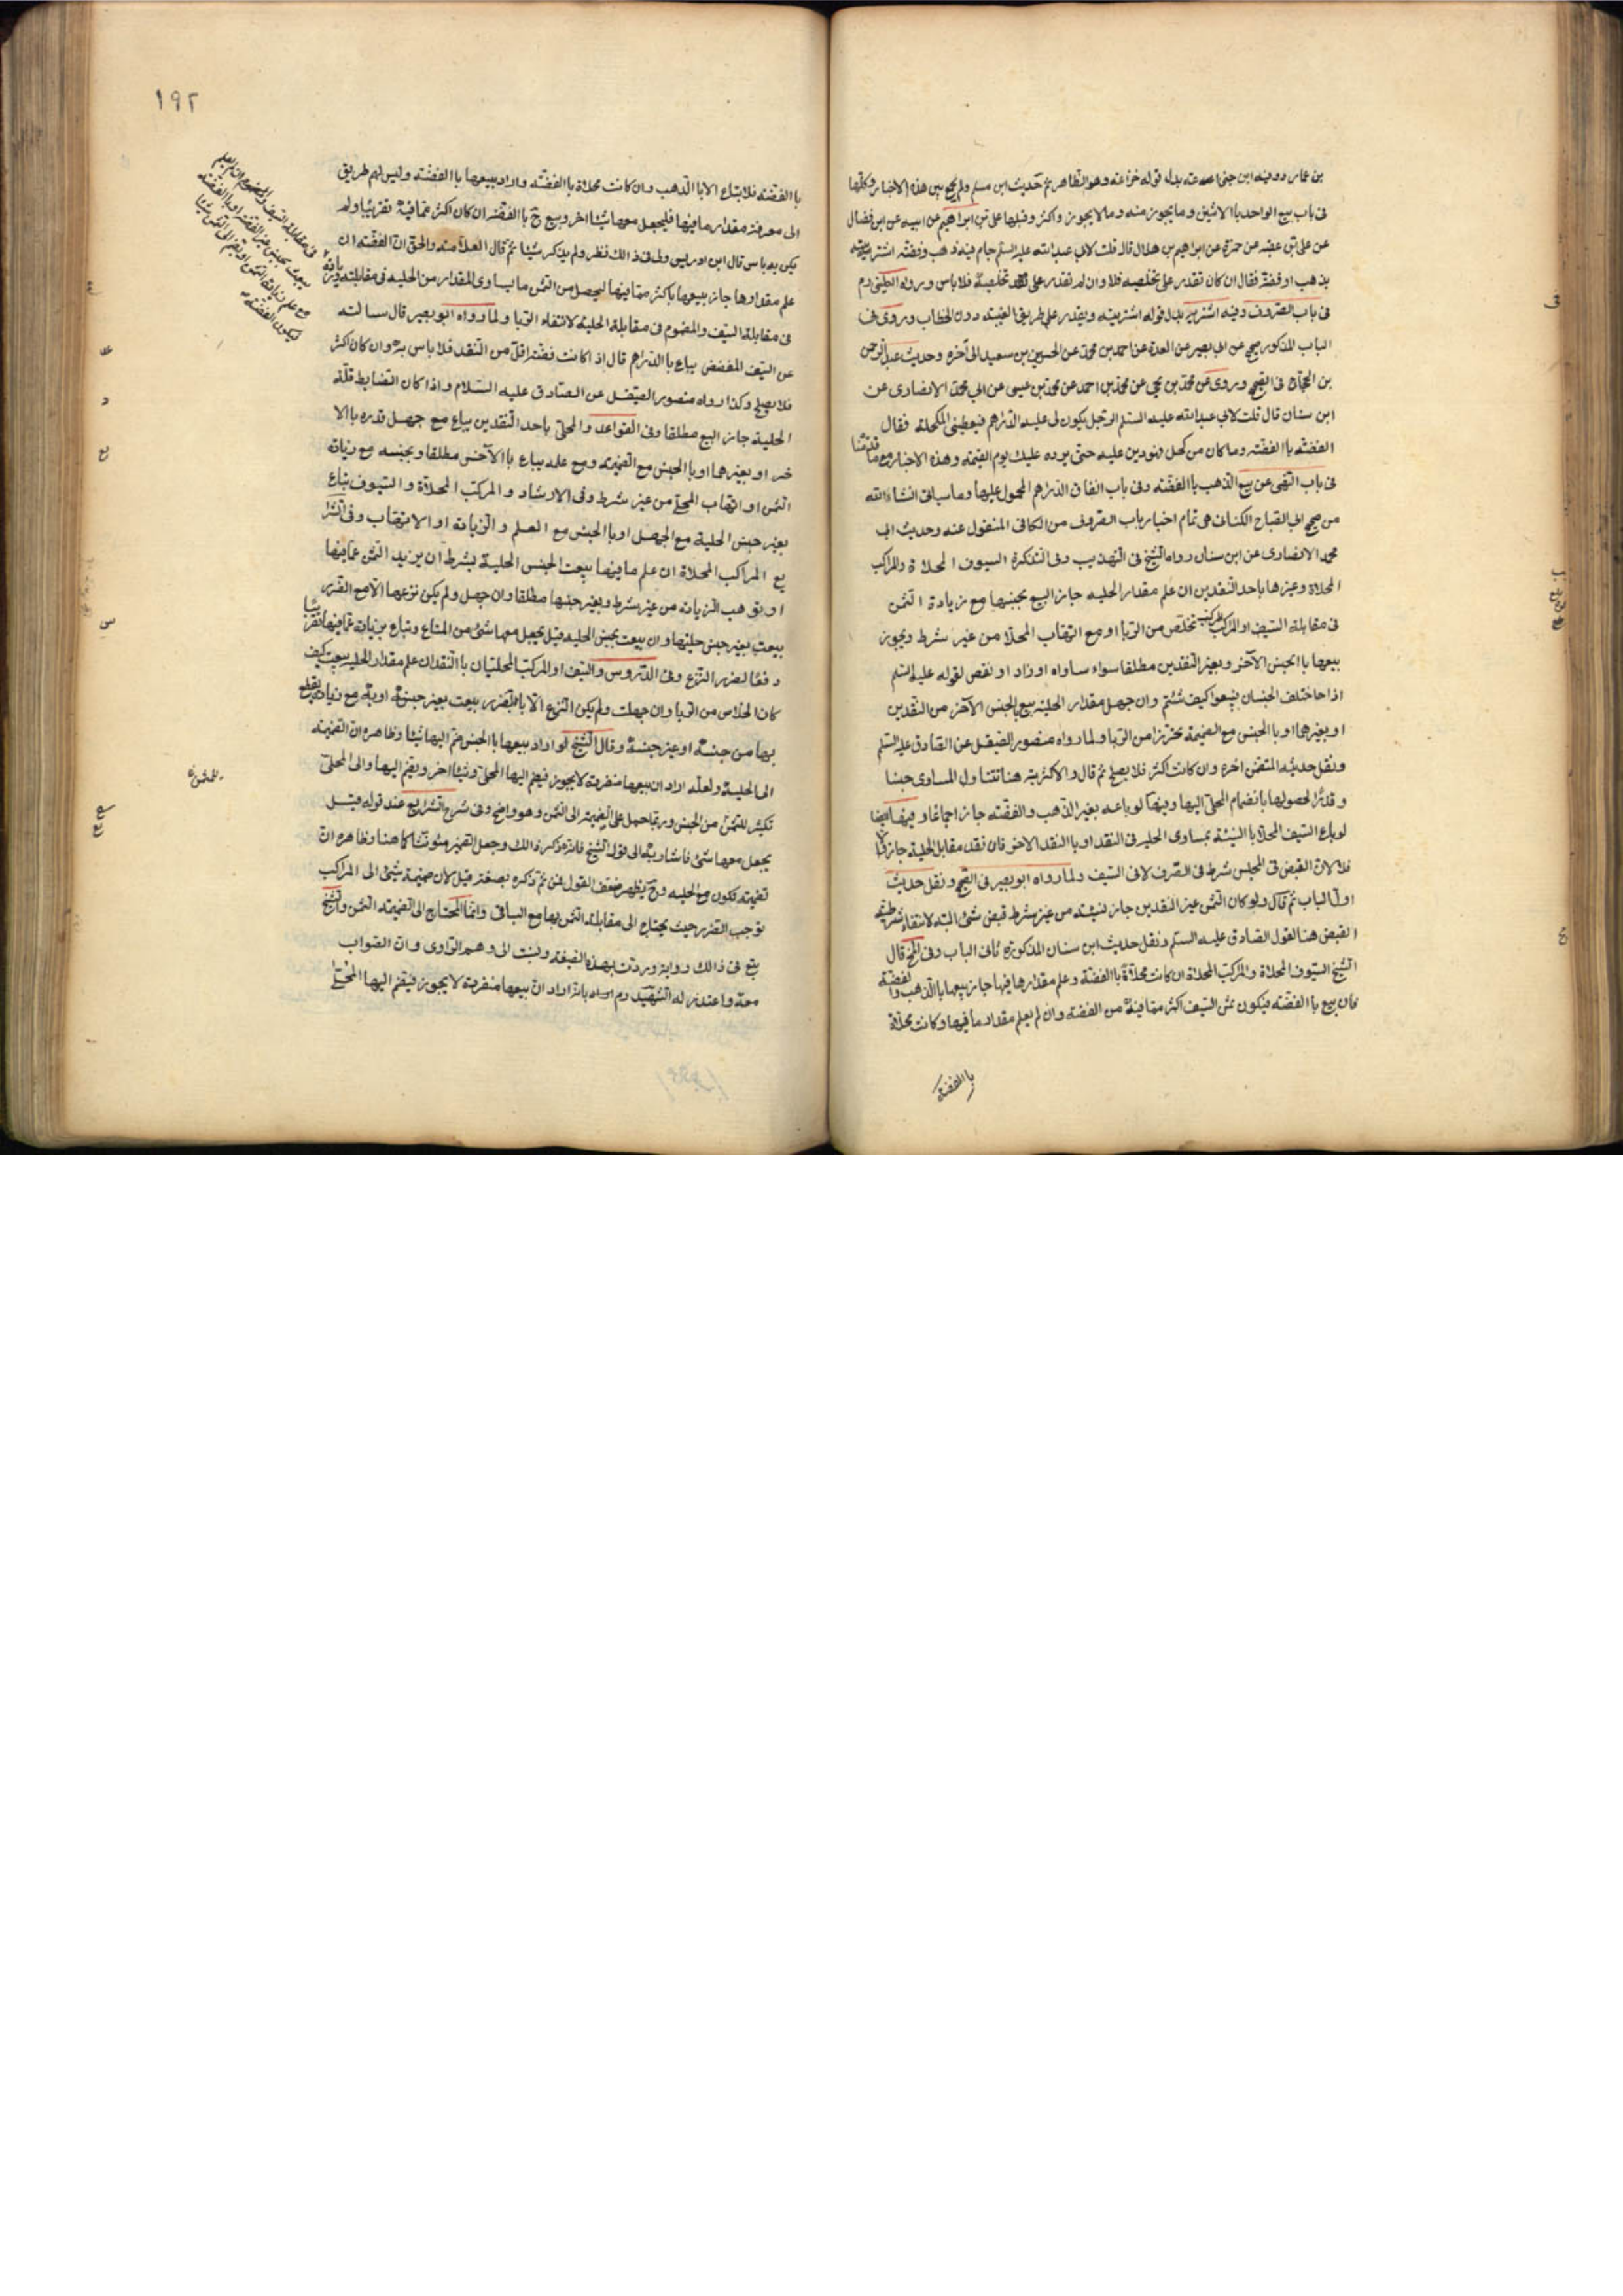 بن عمار وفيه ابن جنى اعه عنه بدله قوله خزاعه وهو الظاهر ثم حديث ابن مسلم ولم يجئ بين هذه الاخبار وكلها
فى باب بيع الواحد باالاثنين وما يجوز منه وما لا يجوز واكثر وقبلها على بن ابراهيم عن ابيه عن ابن فضال
عن على بن عقبه عن حمزة عن ابراهيم بن هلال قال قلت لابى عبد الله عليه السلم جام فيه ذهب وفضّه اشتريه
بذهب او فضّة فقال ان كان تقدر على تخلصيه فلا وان لم تقدر على تخلصيه فلا باس وروله
فى باب الصّروف وفيه اشتريه بدل قوله اشتريته ويقدر على طريق الغيبته دون الخطاب وروى فى
الباب المذكور صح عن ابى بصير عن العدة عن احمد بن محمّد عن الحسين بن سعيد الى آخره وحديث عبد الرحمن
بن الحجّاج فى الصّحيح وروى عن محمّد بن يحيى عن محمّد بن احمد عن محمّد بن عيسى عن ابى محمّد الانصارى عن
ابن سنان قال قلت لابى عبد الله عليه السلم الرّجل يكون لى عليه الدّراهم فيعطينى المكحلة فقال
الفضّة باالفضّته وما كان من كحل فهو دين عليه حتى يرده عليك يوم القيمة وهذه الاخبار مع ما قدّمنا
فى باب النّهى عن بيع الذّهب باالفضّته وفى باب انفاق الدّراهم المحمول عليها وما سياتى انشاء الله
من صح ابى الصّباح الكنانى هى تمام اخبار باب الصّروف من الكافى المنقول عنه وحديث ابى
محمّد الانصارى عن ابن سنان رواه الشّيخ فى التّهذيب وفى التّذكرة السيوف المحلاة والمراكب
المحلاة وغيرها باحد النّقدين ان علم مقدار الحليه جاز البيع بجنسها مع زيادة الثمن
فى مقابلة السّيف او المركب تخلّص من الرّبا او مع اتّهاب المحلا من غير شرط ويجوز
بيعها باالجنس الآخر وبغير النّقدين مطلقا سواء ساواه او زاد او نقص لقوله عليه السّلم
اذا اختلف الجنسان فبيعوا كيف شئتم وان جهل مقدار الحلية بيع باالجنس الآخر من النّقدين
او بغيرهما او باالجنس مع الضميمة تحرّزا من الرّبا ولما رواه منصور الصّيقل عن الصّادق عليه السّلم
ونقل حديثه المتضمّن اخره وان كانت اكثر فلا يصلح ثم قال والاكثريته هنا تتناول المساوى جنسا
وقدرًا لحصولها بانضمام المحلّى اليها وفيها لو باعه بغير الذّهب والفضّته جاز اجماعًا وفيها ايضا
لو باع السّيف المحلا باالنّسيئة بمساوى الحليه فى النّقد او باالنقد الآخر فان نقد مقابل الحلية جاز والّا
فلا لانّ القبض فى المجلس شرط فى الصّرف لا فى السّيف ولما رواه ابو بصير فى الصّحيح ونقل حديث
اوّل الباب ثم قال ولو كان الثمن غير النّقدين جاز لنسيئته من غير شرط قبض شئ البتة لانتفاء شرطيّة
القبض هنا لقول الصّادق عليه السلم ونقل حديث ابن سنان المذكوره ثانى الباب وفى المخ قال
الشّيخ السّيوف المحلاة والمراكب المحلاة ان كانت محلّاة باالفضّة وعلم مقدارها فيها جاز بيعها باالذّهب والفضّة
فان بيع باالفضّته فيكون ثمن السّيف اكثر ممّا فيه من الفضّة وان لم يعلم مقدار ما فيها وكانت محلّاة
باالفضّته
١٩٢
باالفضّته فلا تباع الا باالذّهب وان كانت محلاة باالفضّته واراد بيعها باالفضّته وليس لهم طريق
الى معرفة مقدار ما فيها فليجعل معها شيئا اخر وبيع ح باالفضّة ان كان اكثر عمّا فيه تقريبا ولم
يكن به باس قال ابن ادريس ولى فى ذالك نظر ولم يذكر شيئا ثم قال العلّامته والحق انّ الفضّته ان
علم مقدارها جاز بيعها باكثر ممّا فيها ليحصل من الثّمن ما يساوى المقدار من الحليه فى مقابلته وزيادة
فى مقابلة السّيف والمضموم فى مقابلة الحليّه لانتفاء الرّبا ولما رواه ابو بصير قال سالته
عن السّيف المفضض يباع باالدّراهم قال اذا كانت فضّته اقلّ من النّقد فلا باس به وان كان اكثر
فلا يصلح وكذا رواه منصور الصّيقل عن الصّادق عليه السّلام واذا كان الضّابط قلّة
الحلية جاز البيع مطلقا وفى القواعد والمحلّى باحد النّقدين يباع مع جهل قدره باالا
خر او بغيرهما او باالجنس مع الضّميمة ومع علمه يباع باالآخر مطلقا وبجنسه مع زيادة
الثّمن او اتهاب المحلّى من غير شرط وفى الارشاد والمركب المحلّاة والسّيوف تباع
بغير جنس الحلية مع الجهل او باالجنس مع العلم والزّيادة او الاتهاب وفى الشرا
يع المراكب المحلاة ان علم ما فيها بيعت الجنس الحلية بشرط ان يزيد الثمن عمّا فيها
او يوهب الزّيادة من غير شرط وبغير جنسها مطلقا وان جهل ولم يكن نزعها الّا مع الضّرر
بيعت بغير جنس حليتها وان بيعت بجنس الحليه قيل يجعل معها شئ من المتاع وتباع بزيادة عمّا فيها تقريبًا
دفعًا لضرر النّزع وفى الدّروس والسّيف او المركب المحلّيان باالنّقد ان علم مقدار الحليه بيعت كيف
كان الخلاص من الرّبا وان جهلت ولم يكن النّزع الّا باالضّرر بيعت بغير جنسه او به مع زيادة
بها من جنسه او غير جنسه وقال الشّيخ لو اراد بيعها باالجنس ضمّ اليها شيئا وظاهره ان الضّميمة
الى الحليه ولعلّه اراد ان بيعها منفردة لا يجوز فيضم اليها المحلّى وشيئا اخر ويضم اليها والى المحلّى
تكثير للثّمن من الجنس وربّما حمل على الضّميمه الى الثمن وهو واضح وفى شرح الشّرايع عند قوله قيل
يجعل معها شئ فاشار به الى قول الشّيخ فانّه ذكر ذالك وجعل الضّمير مؤنّثا كما هنا وظاهره انّ
الضميمة تكون مع الحليه وح يظهر ضعف القول فمن ثمّ ذكره بصيغة قيل لانّ ضميمة شئ الى المراكب
توجب الضّرر حيث يحتاج الى مقابلته الثّمن بها مع الباقى وانّما المحتاج الى الضّميمة الثّمن والشّيخ
تبع فى ذالك رواية وردت بهذه الصّيغة ونسبت الى وهم الرّاوى وانّ الصّواب
معه واعتذر له الشّهيد رم اراده بانّه اراد انّ بيعها منفردة لا يجوز فيضم اليها المحلّى
فى مقابلة السّيف والمضموم ان لم يعلم
بيعت بجنس غير الفضّة او باالفضّة
مع علم زيادة الثّمن او يضم الى الثّمن شيئا
ليكون الفضّة
للثمن